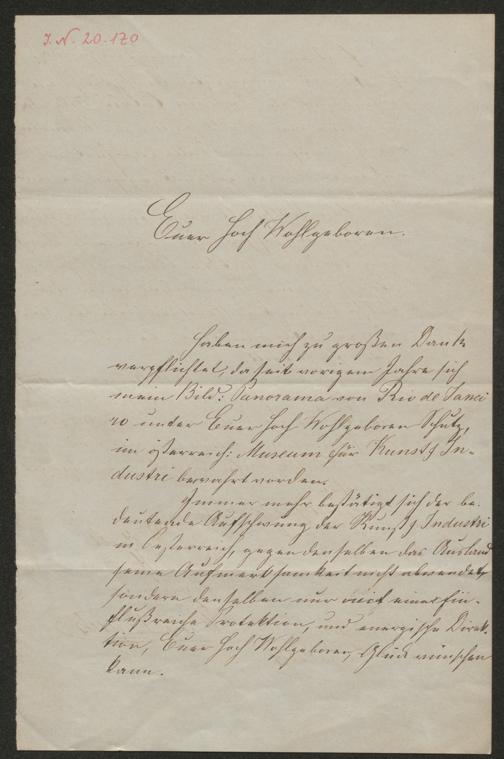 J. N. 20.170
Euer Hoch Wohlgeboren.
Haben mich zu großen Dank
verpflichtet, da seit vorigem Jahre sich
mein Bild: Panorama von Rio de Janei
ro unter Euer Hoch Wohlgeboren Schutz,
im österreich: Museum für Kunst & In-
dustri bewahrt worden.
Immer mehr bestätigt sich der be-
deutende Aufschwung der Kunst & Industri
in Oesterreich, gegen denselben das Ausland
seine Aufmerksamkeit nicht abwendet,
sondern denselben nur einer Ein-
flußreiche Protektion, und energische Direk-
tion, Euer Hoch Wohlgeboren, Glück wünschen
kann.